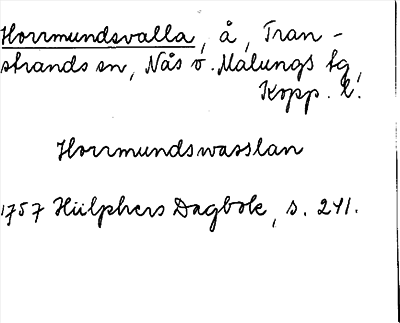 Horrmundsvalla, å, Tran-
strands sn, Nås o. Malungs tg,
Kopp. l.
Horrmundswasslan
1757 Hülphers Dagbok, s. 241.